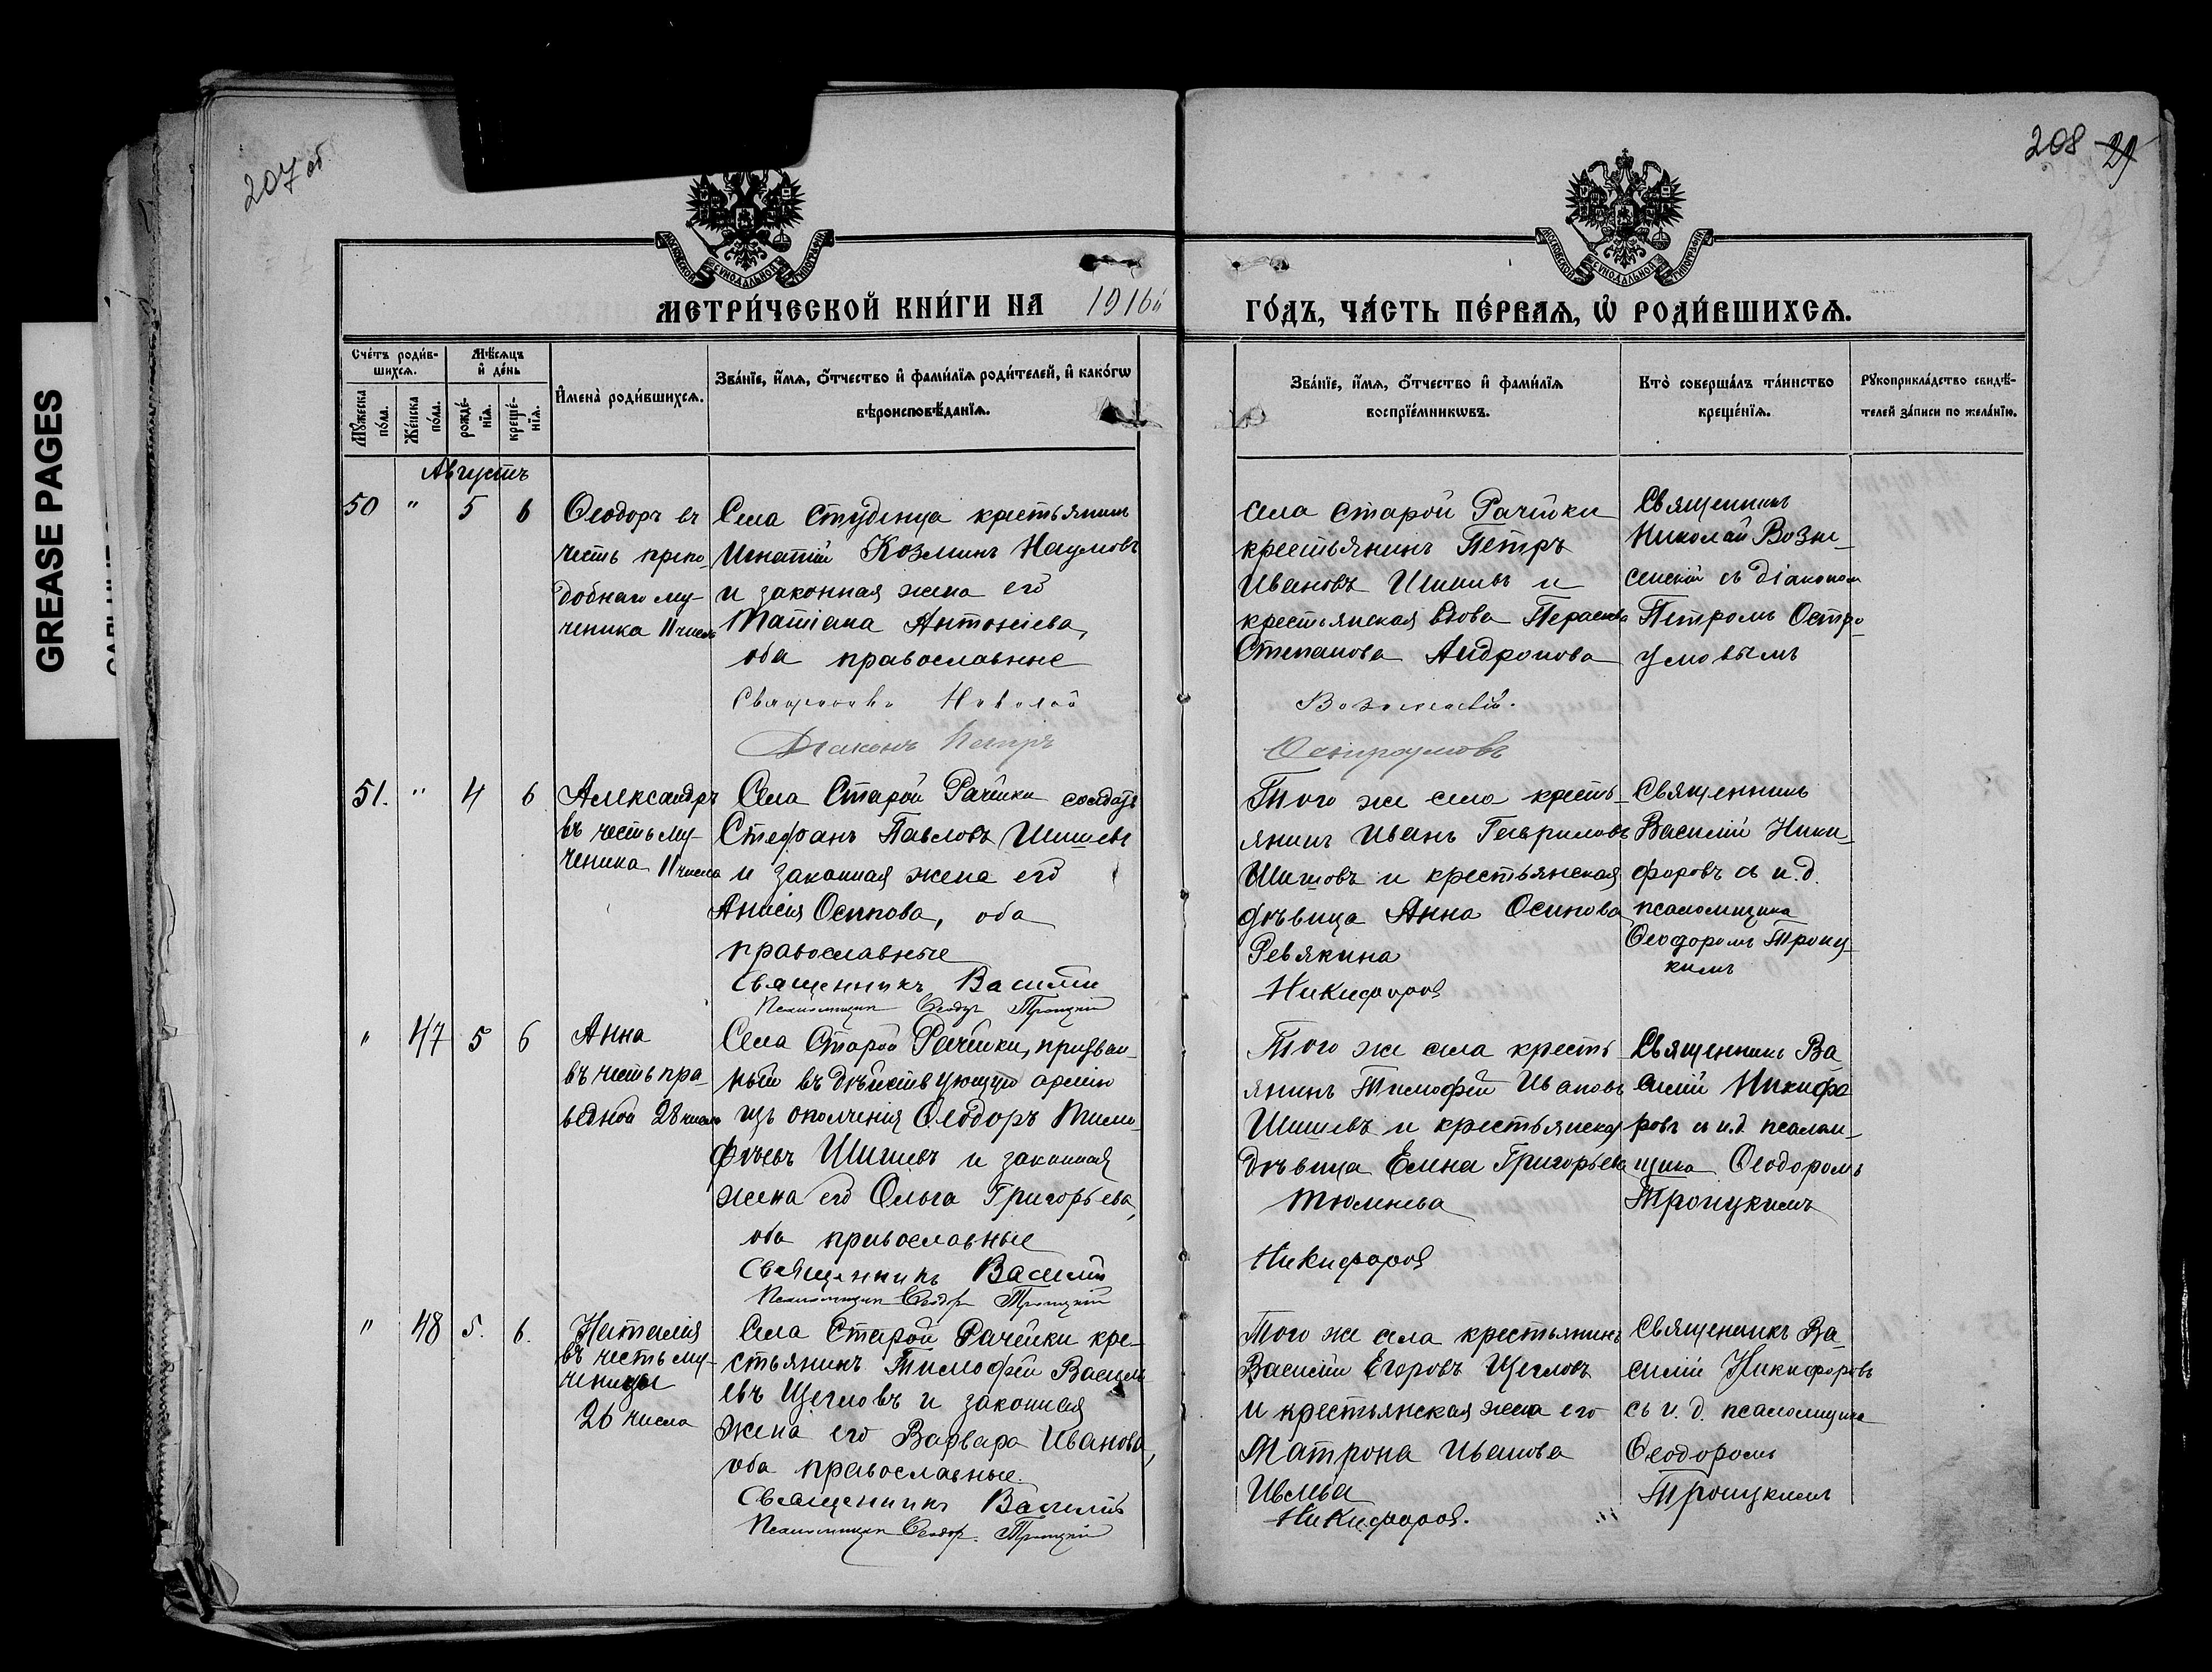 GREASE PAGES
207 об
208 29
МОСКОВСКОЙ СУНОДАЛЬНОЙ ТИПОГРАФІИ
МОСКОВСКОЙ СУНОДАЛЬНОЙ ТИПОГРАФІИ
МЕТРИ́ЧЕСКОЙ КНИ́ГИ НА 1916й ГО́ДЪ, ЧА́СТЬ ПЕ́РВАѦ, Ѡ҆ РОДИ́ВШИХСѦ.
Сче́тъ роди́в-
шихсѧ.
Мѣ́сѧцъ
и҆ де́нь
Мꙋ́жеска
по́ла.
Же́нска
по́ла.
рожде́-
нїѧ.
креще́-
нїѧ.
И҆мена̀ роди́вшихсѧ.
Зва́нїе, и҆́мѧ, ѻ҆́тчество и҆ фами́лїѧ роди́телей, и҆ како́гѡ
вѣроисповѣ́данїѧ.
Зва́нїе, и҆́мѧ, ѻ҆́тчество и҆ фами́лїѧ
воспрїе́мникѡвъ.
Кто̀ соверша́лъ та́инство
креще́нїѧ.
Рꙋкоприкла́дство свидѣ́-
телей за́писи по жела́нїю.
Августъ
50 " 5 6
Ѳеодоръ въ
честь препо-
добнаго му-
ченика 11 числа
Села Студенца крестьянинъ
Игнатій Козминъ Наумовъ
и законная жена его
Татіана Антоніева,
оба православные
Священникъ Николай
Діаконъ Петръ
села Старой Рачейки
крестьянинъ Петръ
Ивановъ Шишевъ и
крестьянская вдова Параскева
Степанова Андронова
Вознесенскій.
Остроумовъ
Священникъ
Николай Возне-
сенскій съ діакономъ
Петромъ Остро-
умовымъ
51. " 4 6
Александръ
въ честь му-
ченика 11 числа
Села Старой Рачейки солдатъ
Стефанъ Павловъ Шишевъ
и законная жена его
Анисія Осипова, оба
православные
Священникъ Василій
Псаломщикъ Ѳеодоръ Троицкій
Того же села кресть-
янинъ Иванъ Гавриловъ
Шишовъ и крестьянская
дѣвица Анна Осипова
Ревякина
Никифоровъ
Священникъ
Василій Ники-
форовъ съ и.д.
псаломщика
Ѳеодоромъ Троиц-
кимъ
" 47 5 6
Анна
въ честь пра-
ведной 28 числа
Села Старой Рачейки, призван-
ный въ дѣйствующую армію
изъ ополченія Ѳеодоръ Тимо-
фѣевъ Шишевъ и законная
жена его Ольга Григорьева,
оба православные
Священникъ Василій
Псаломщикъ Ѳеодоръ Троицкій
Того же села кресть-
янинъ Тимофей Ивановъ
Шишевъ и крестьянская
дѣвица Елена Григорьева
Тюленева
Никифоровъ
Священникъ Ва-
силій Никифо-
ровъ съ и.д. псалом-
щика Ѳеодоромъ
Троицкимъ
" 48 5. 6.
Наталія
въ честь му-
ченицы
26 числа
Села Старой Рачейки кре-
стьянинъ Тимофей Василь-
евъ Щегловъ и законная
жена его Варвара Иванова,
оба православные.
Священникъ Василій
Псаломщикъ Ѳеодоръ Троицкій
Того же села крестьянинъ
Василій Егоровъ Щегловъ
и крестьянская жена его
Матрона Иванова
Ивлева
Никифоровъ.
Священникъ Ва-
силій Никифоровъ
съ и. д. псаломщика
Ѳеодоромъ
Троицкимъ